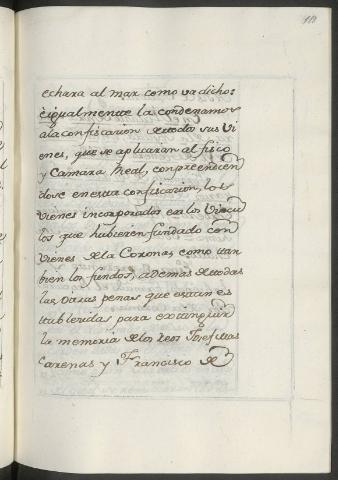 echara al mar como va dicho:
è igualmente la condenamos
a la confiscacion de todos sus Vi
enes, que se aplicaran al fisco
y Camara Real, conprendien
dose en esta confiscacion, los
vienes incorporados en los Vincu
los que hubieren fundado con
vienes de la Corona, como tan
bien los fundos, ademas de todas
las otras penas que estan es
tablecidas para extinguir
la memoria de los reos Josefillas
Carenas y Francisco de